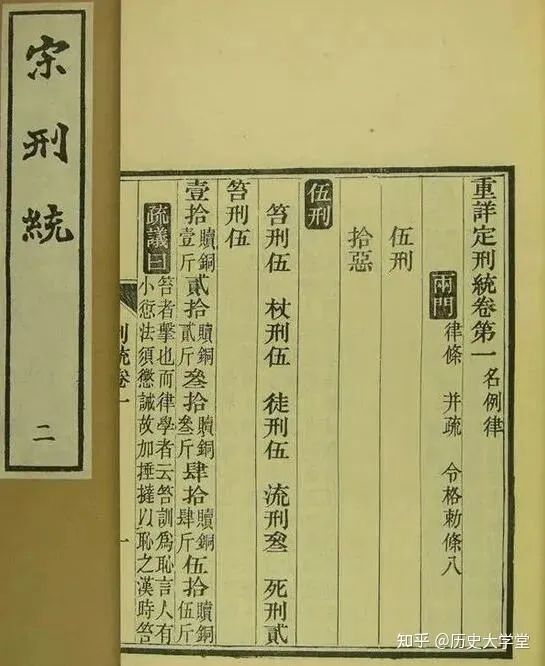 宋刑統
二
重詳定刑統卷第一 名例律
兩門 律條 并疏 令格勑條八
伍刑
拾惡
伍刑
笞刑伍 杖刑伍 徒刑伍 流刑叁 死刑貳
笞刑伍
壹拾贖銅壹斤 貳拾贖銅貳斤 叁拾贖銅叁斤 肆拾贖銅肆斤 伍拾贖銅伍斤
疏議曰 笞者擊也而律學者云笞訓爲恥言人有
小愆法須懲誡故加捶撻以恥之漢時笞
刑統卷一
一
知乎 @历史大学堂